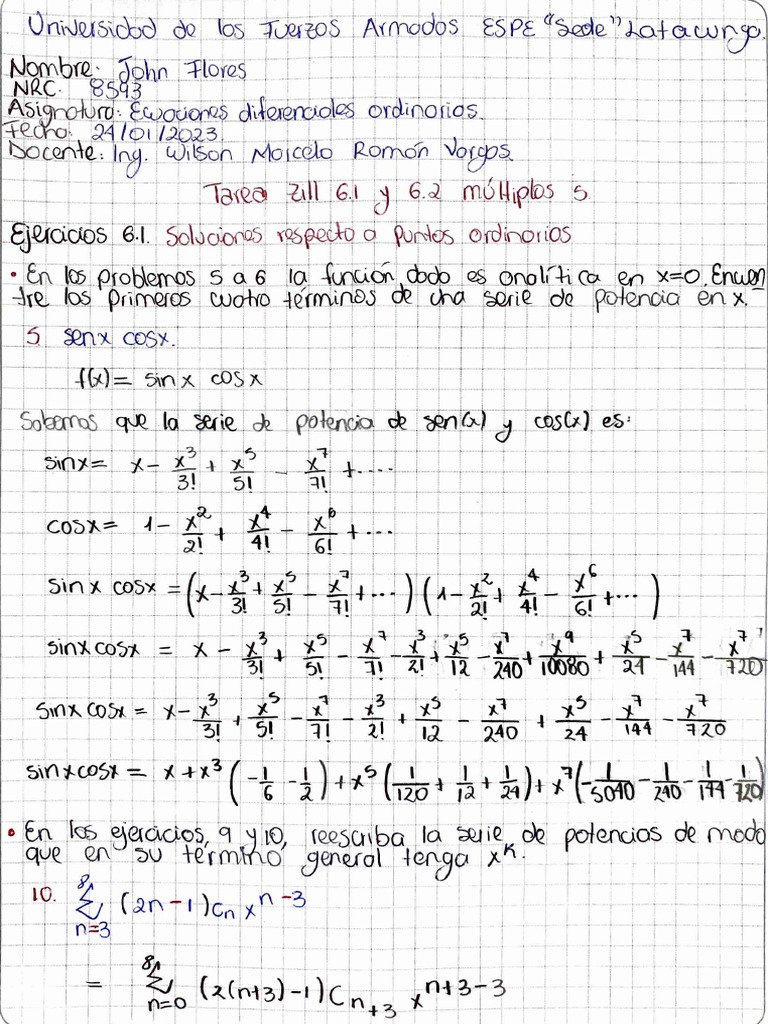 Universidad de las Fuerzas Armadas ESPE "Sede" Latacunga.
Nombre: John Flores
NRC: 8593
Asignatura: Ecuaciones diferenciales ordinarias.
Fecha: 24/01/2023
Docente: Ing. Wilson Marcelo Román Vargas.
Tarea Zill 6.1 y 6.2 múltiplos 5.
Ejercicios 6.1. Soluciones respecto a puntos ordinarios
• En los problemas 5 a 6 la función dada es analítica en x=0. Encuen
tre los primeros cuatro términos de una serie de potencia en x.
5. senx cosx.
f(x) = sinx cosx
Sabemos que la serie de potencia de sen(x) y cos(x) es:
sinx = x - x³/3! + x⁵/5! - x⁷/7! + ....
cosx = 1 - x²/2! + x⁴/4! - x⁶/6! + ...
sinx cosx = (x - x³/3! + x⁵/5! - x⁷/7! + ...) (1 - x²/2! + x⁴/4! - x⁶/6! + ...)
sinx cosx = x - x³/3! + x⁵/5! - x⁷/7! - x³/2! + x⁵/12 - x⁷/240 + x⁹/10080 + x⁵/24 - x⁷/144 - x⁷/720
sinx cosx = x - x³/3! + x⁵/5! - x⁷/7! - x³/2! + x⁵/12 - x⁷/240 + x⁵/24 - x⁷/144 - x⁷/720
sinx cosx = x + x³ (-1/6 - 1/2) + x⁵ (1/120 + 1/12 + 1/24) + x⁷ (-1/5040 - 1/240 - 1/144 - 1/720)
• En los ejercicios, 9 y 10, reescriba la serie de potencias de modo
que en su término general tenga xᴷ.
10. 8 Σ n=3 (2n-1) cₙ xⁿ⁻³
= 8 Σ n=0 (2(n+3)-1) Cₙ₊₃ xⁿ⁺³⁻³